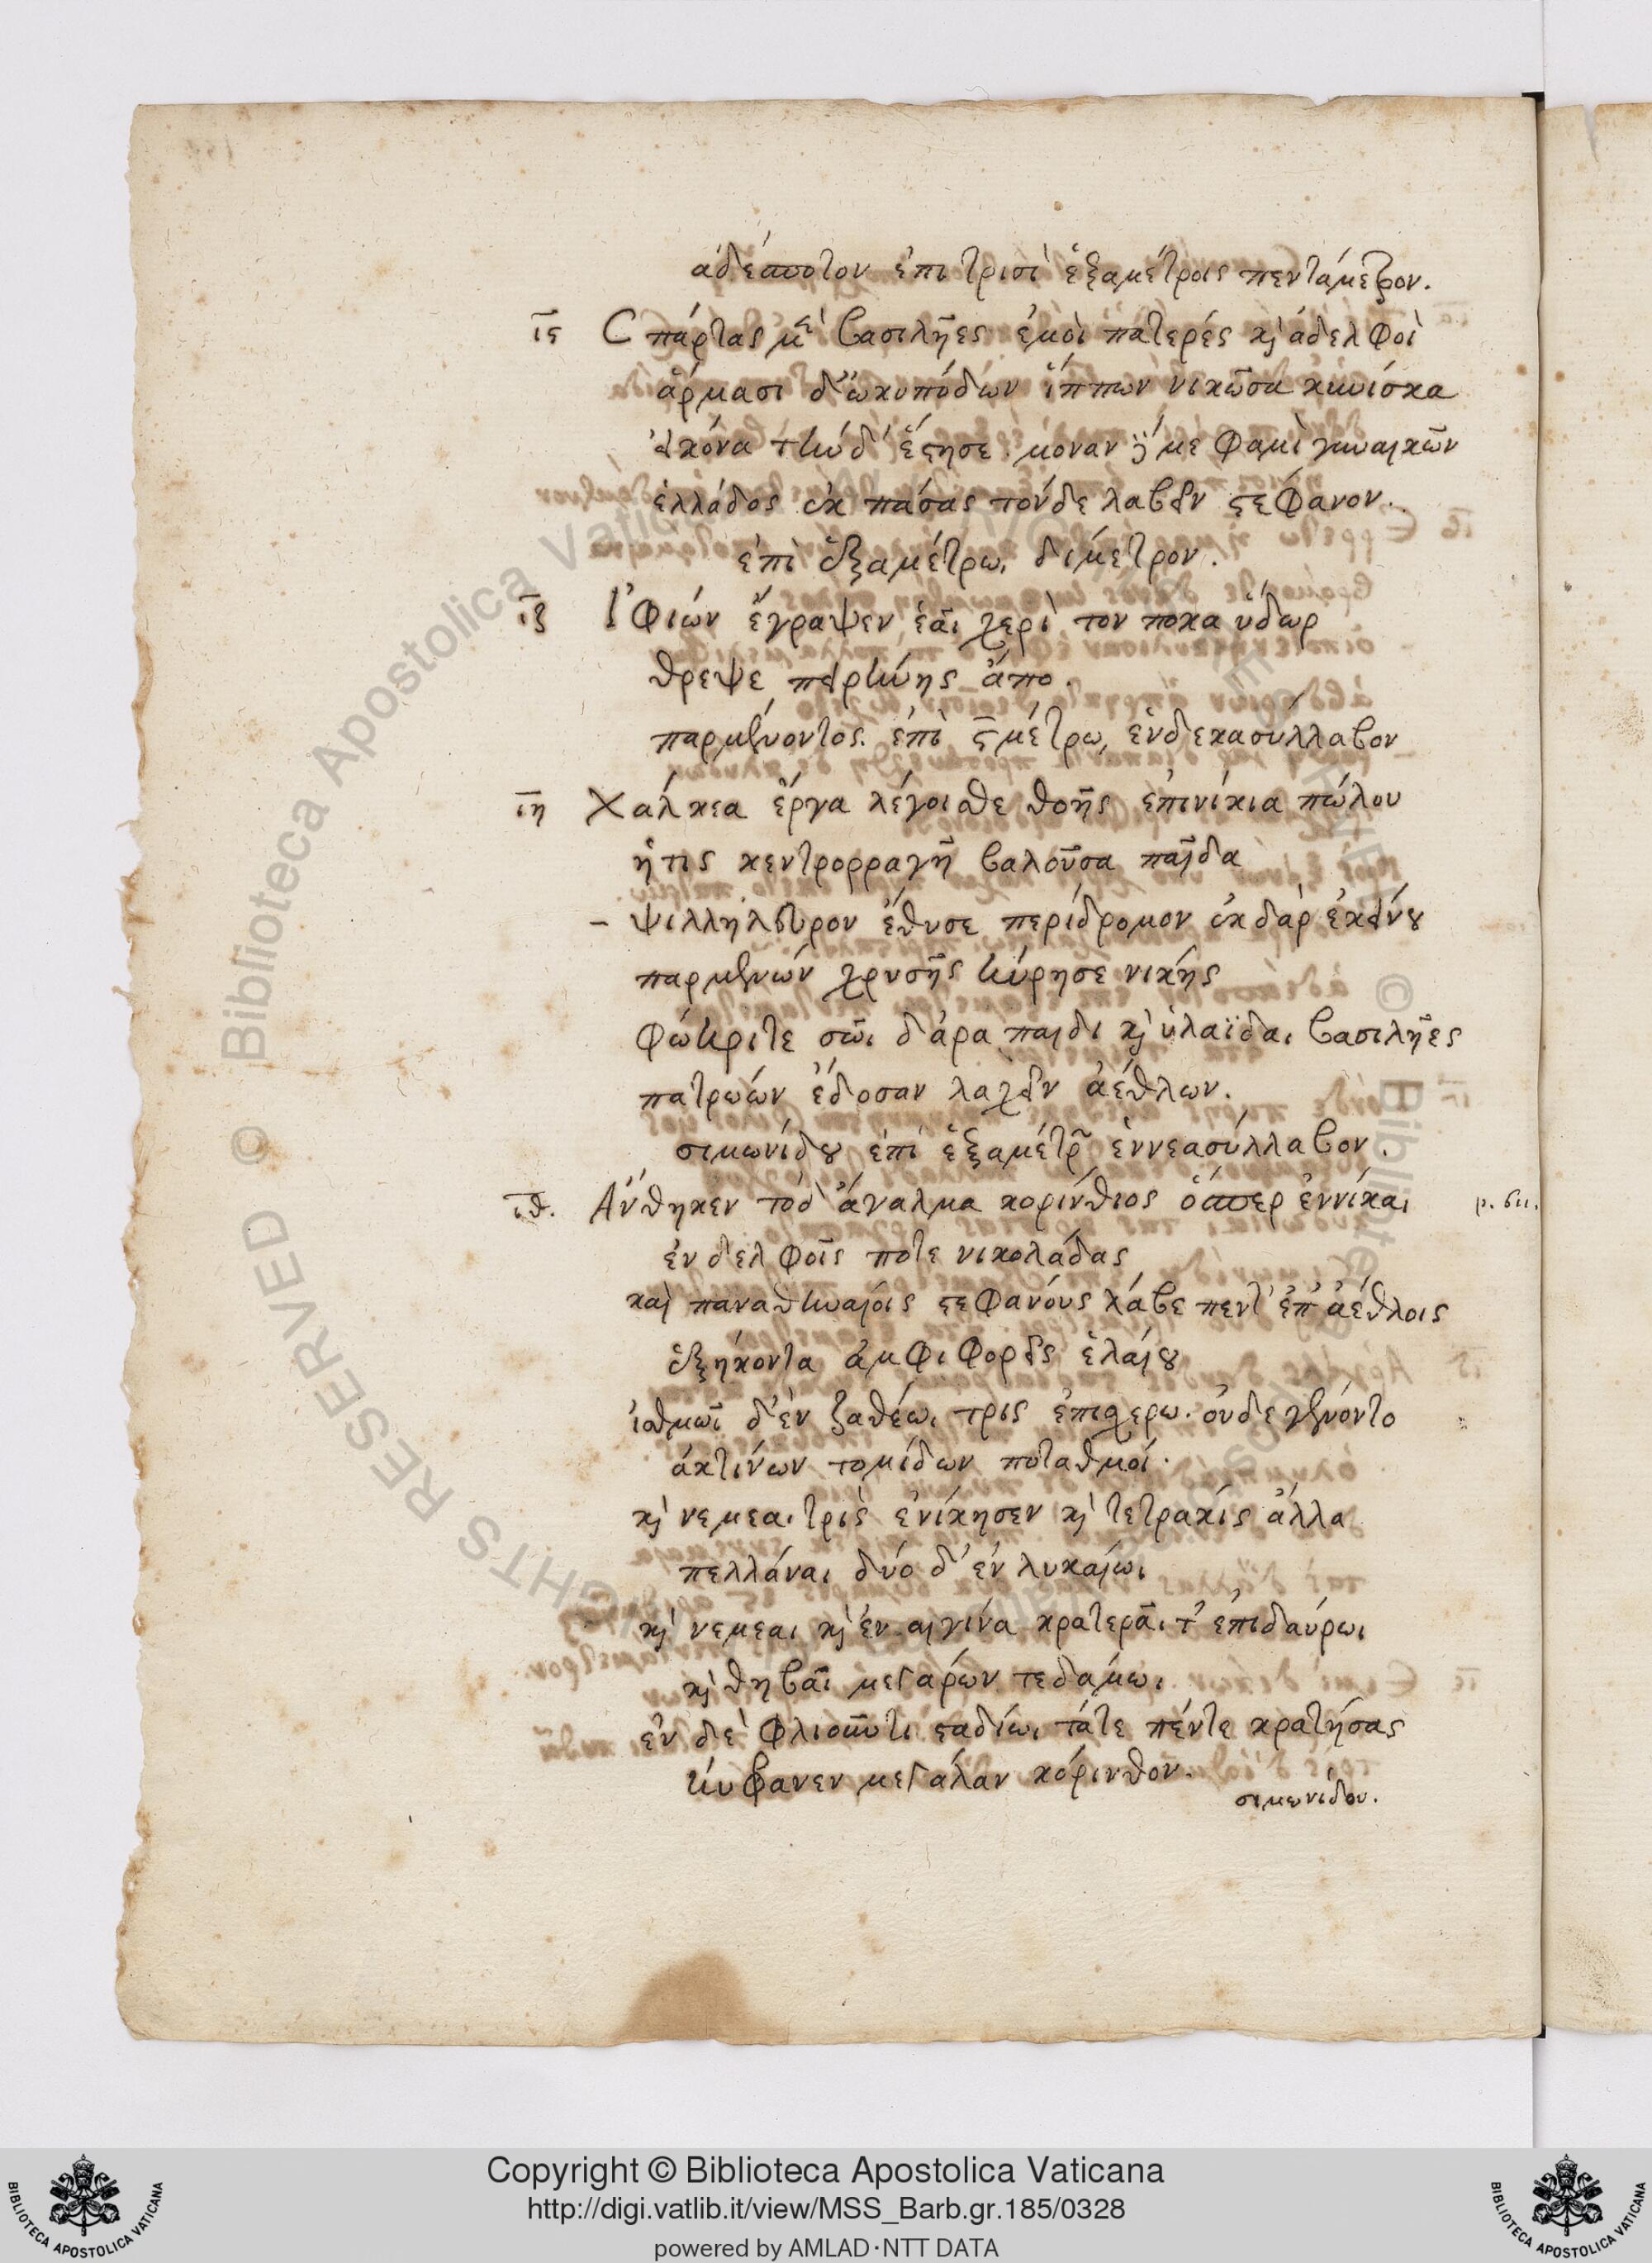 ἀδέσποτον ἐπὶ τρισὶ ἑξαμέτροις πεντάμετρον.
ιϛ Σπάρτας μὲ βασιλῆες ἐμοὶ πατερές κỳ ἀδελφοὶ
ἅρμασι δ' ὠκυπόδων ἵππων νικῶσα κυνίσκα
εἰκόνα τήνδ' ἔστησε. μόναν δ' με φαμὶ γυναικῶν
ἑλλάδος ἐκ πάσας τόνδε λαβεῖν στέφανον.
ἐπὶ ἑξαμέτρω, δίμετρον.
ιζ Ἰφιών ἔγραψεν ἑᾶι χερὶ τον ποκα ὕδωρ
θρεψε πειρήνης ἄπο.
παρμένοντος. ἐπὶ ϛμέτρω, ἑνδεκασύλλαβον
ιη Χάλκεα ἔργα λέγοισθε θοῆς ἐπινίκια πώλου
ἥτις κεντρορραγῆ βαλοῦσα παῖδα
– ψιλλήλευρον ἔθυσε περίδρομον ἐκ δὰρ ἐκείνου
παρμενών χρυσῆς κύρησε νικής
φώκριτε σῶι δ' ἄρα παιδὶ κỳ ὑλαΐδαι βασιλῆες
πατρώων ἔδοσαν λαχεῖν ἀέθλων.
σιμωνίδου ἐπὶ ἑξαμέτρω ἐννεασύλλαβον.
ιθ. Ἀνθηκεν τόδ' ἄγαλμα κορίνθιος ὅσπερ ἐννίκαι
p. 611.
ἐν δελφοῖς ποτε νικολάδας
καὶ παναθηναίοις στεφάνους λάβε πεντ' ἐπ' ἀέθλοις
ἑξήκοντα ἀμφιφορεῖς ἐλαίου
ἰσθμῶι δ' ἐν ζαθέωι τρὶς ἐπισχερω. οὐδε γένοντο
ἀκτίνων τομίδων ποταθμοί.
κỳ νεμεαι τρὶς ἐνίκησεν κỳ τετρακίς ἄλλα
πελλάναι δύο δ' ἐν λυκαίωι
κỳ νεμεαι κỳ ἐν αἰγίνα κρατερᾶι τ' ἐπιδαύρωι
κỳ θηβᾶι μεγαρών τε δαμωι
ἐν δὲ φλιοῦντι σταδίωι τάτε πέντε κρατήσας
ηὔφρανεν μεγάλαν κόρινθον.
σιμωνίδου.
Copyright © Biblioteca Apostolica Vaticana
http://digi.vatlib.it/view/MSS_Barb.gr.185/0328
powered by AMLAD·NTT DATA